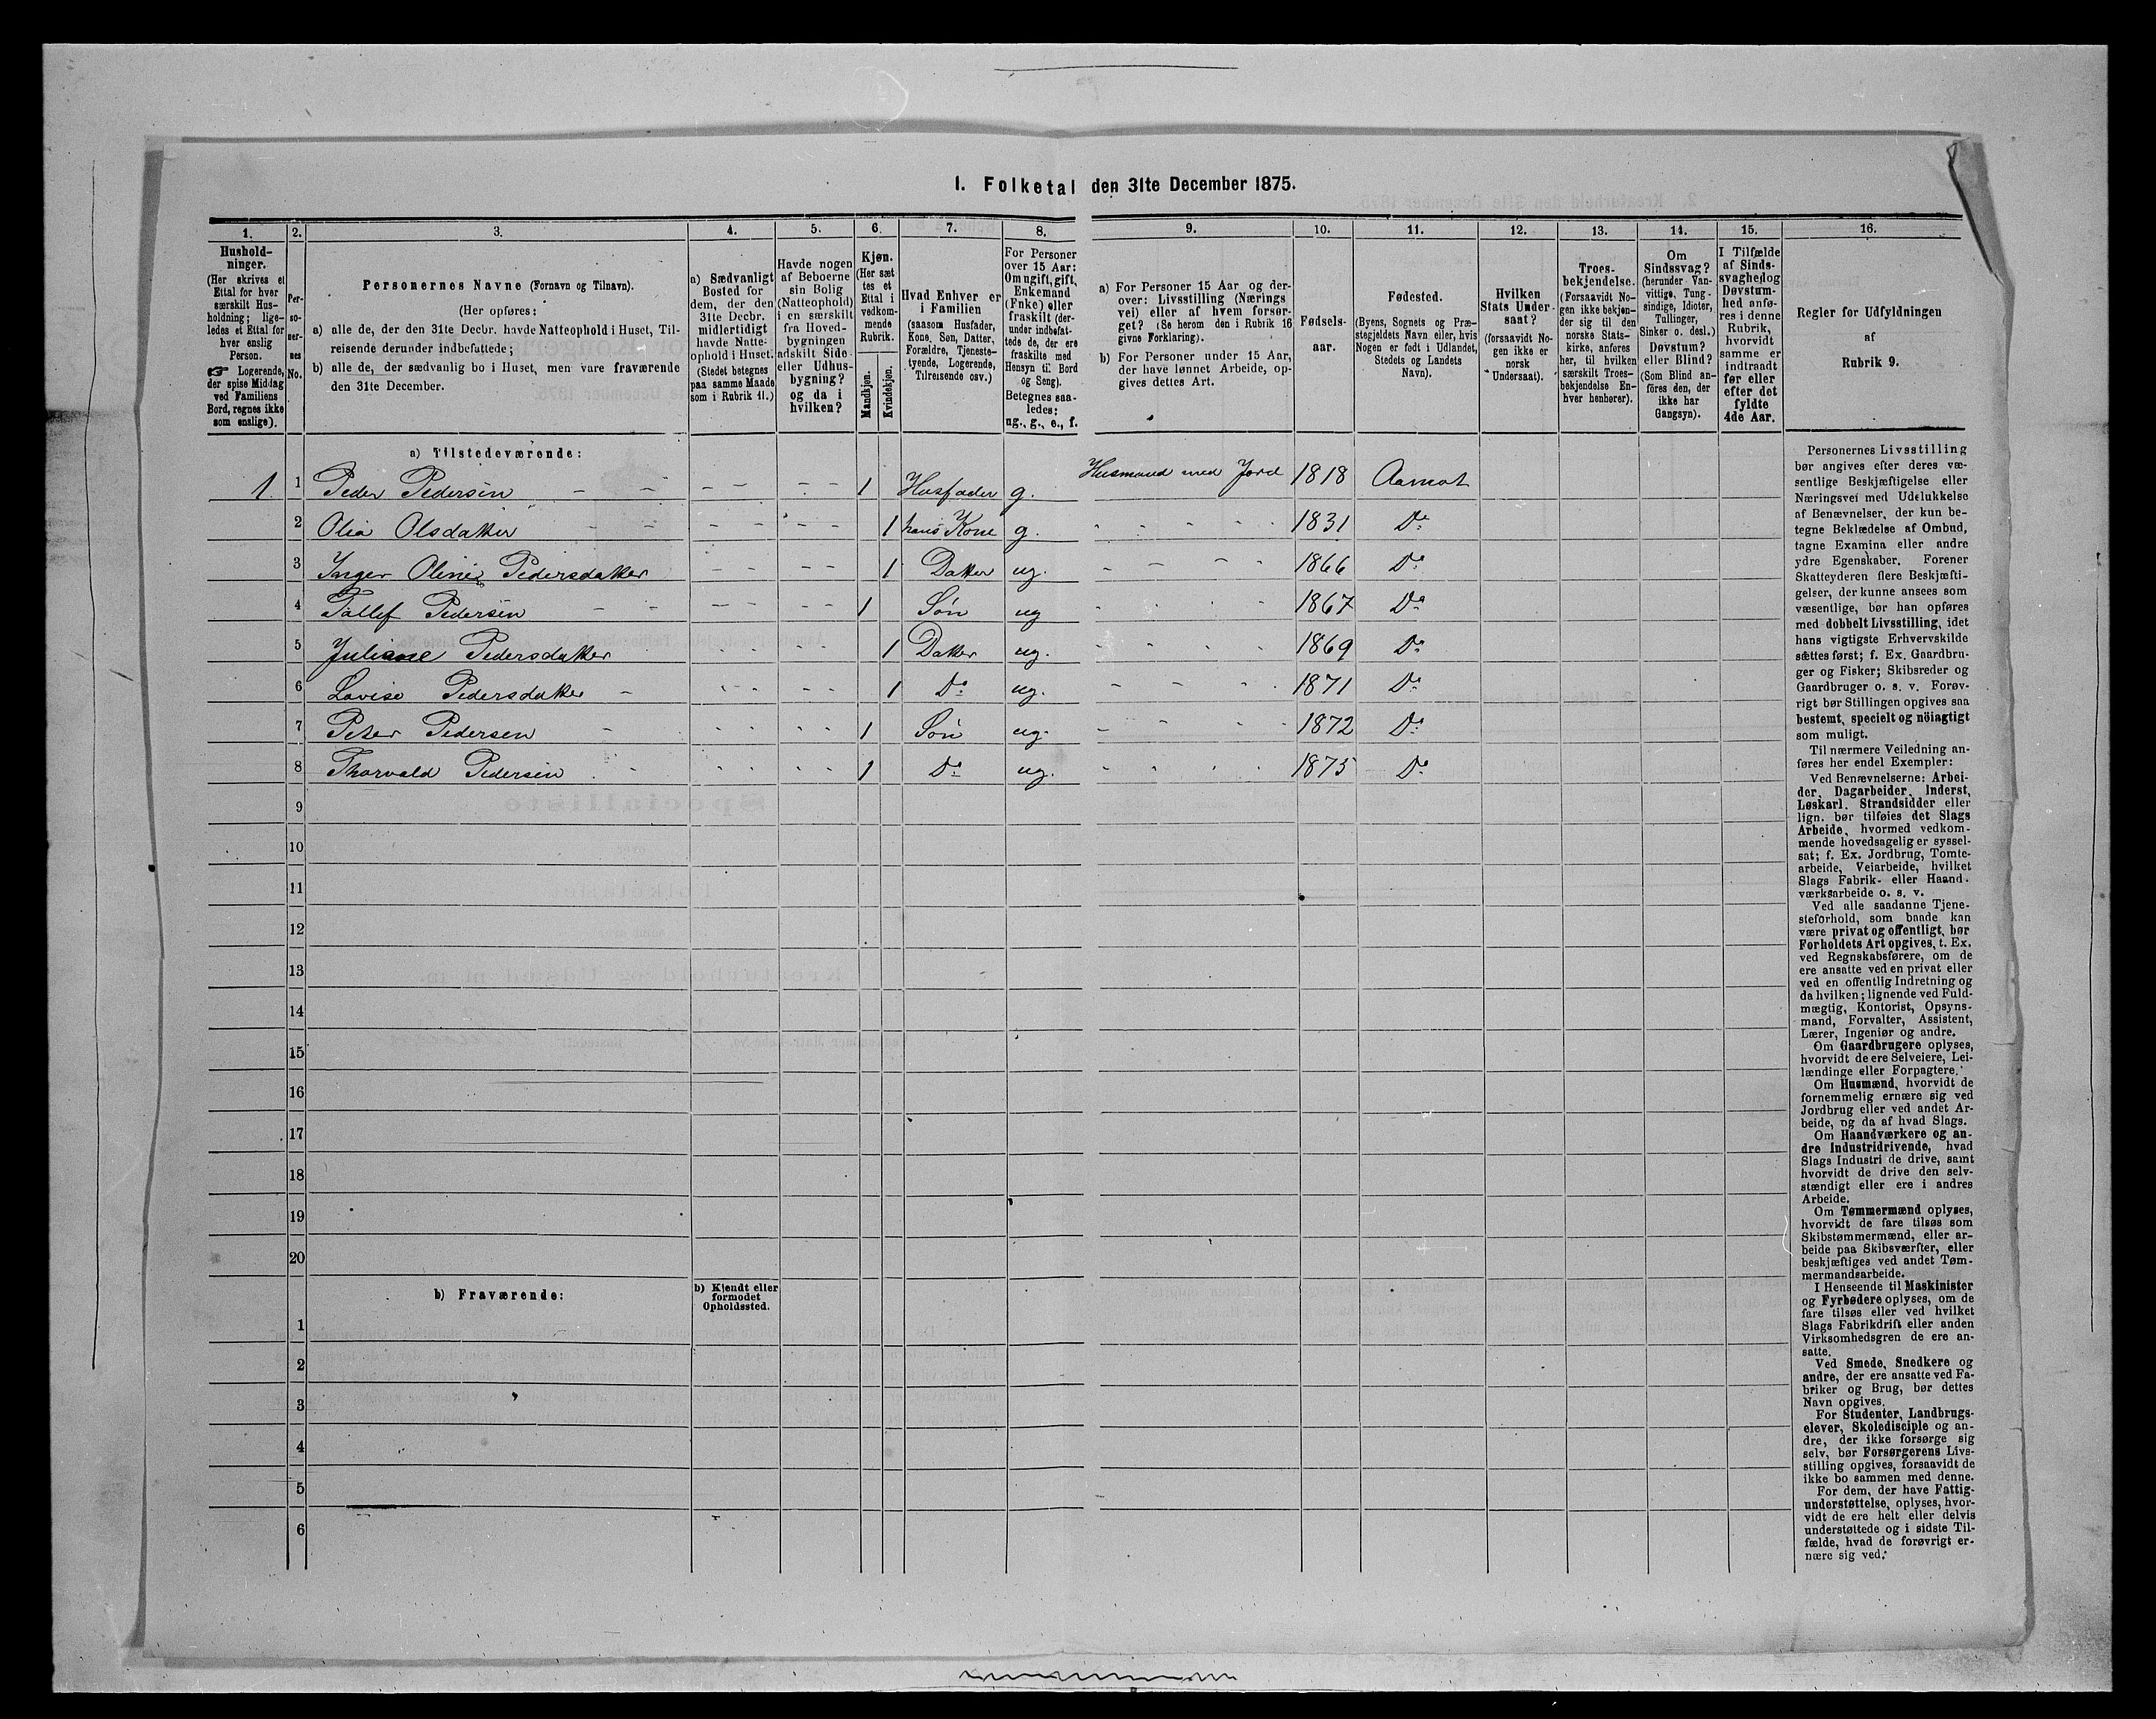 I. Folketal den 31te December 1875.
1. 2. 3. 4. 5. 6. 7. 8. 9. 10. 11. 12. 13. 14. 15. 16.
Hushold-
ninger.
(Her skrives et
Ettal for hver
særskilt Hus-
holdning; lige-
ledes et Ettal for
hver enslig
Person.
☞ Logerende,
der spise Middag
ved Familiens
Bord, regnes ikke
som enslige).
Per-
so-
ner-
nes
No.
Personernes Navne (Fornavn og Tilnavn).
(Her opføres:
a) alle de, der den 31te Decbr. havde Natteophold i Huset, Til-
reisende derunder indbefattede;
b) alle de, der sædvanlig bo i Huset, men vare fraværende
den 31te December.
a) Sædvanligt
Bosted for
dem, der den
31te Decbr.
midlertidigt
havde Natte-
ophold i Huset.
(Stedet betegnes
paa samme Maade
som i Rubrik 11.)
Havde nogen
af Beboerne
sin Bolig
(Natteophold)
i en særskilt
fra Hoved-
bygningen
adskilt Side-
eller Udhus-
bygning?
og da i
hvilken?
Kjøn.
(Her sæt-
tes et
Ettal i
vedkom-
mende
Rubrik.
Mandkjøn.
Kvindekjøn.
Hvad Enhver er
i Familien
(saasom Husfader,
Kone, Søn, Datter,
Forældre, Tjeneste-
tyende, Logerende,
Tilreisende osv.)
For Personer
over 15 Aar:
Om ugift, gift,
Enkemand
(Enke) eller
fraskilt (der-
under indbefat-
tede de, der ere
fraskilte med
Hensyn til Bord
og Seng).
Betegnes saa-
ledes:
ug., g., e., f.
a) For Personer 15 Aar og der-
over: Livsstilling (Nærings
vei) eller af hvem forsør-
get? (Se herom den i Rubrik 16
givne Forklaring).
b) For Personer under 15 Aar,
der have lønnet Arbeide, op-
gives dettes Art.
Fødsels-
aar.
Fødested.
(Byens, Sognets og Præ-
stegjeldets Navn eller, hvis
Nogen er født i Udlandet,
Stedets og Landets
Navn).
Hvilken
Stats Under-
saat?
(forsaavidt No-
gen ikke er
norsk
Undersaat).
Troes-
bekjendelse.
(Forsaavidt No-
gen ikke bekjen-
der sig til den
norske Stats-
kirke, anføres
her, til hvilken
særskilt Troes-
bekjendelse En-
hver henhører).
Om
Sindssvag?
(herunder Van-
vittige, Tung-
sindige, Idioter,
Tullinger,
Sinker o. desl.)
Døvstum?
eller Blind?
(Som Blind an-
føres den, der
ikke har
Gangsyn).
I Tilfælde
af Sinds-
svaghed og
Døvstum-
hed anfø-
res i denne
Rubrik,
hvorvidt
samme er
indtraadt
før eller
efter det
fyldte
4de Aar.
Regler for Udfyldningen
af
Rubrik 9.
a) Tilstedeværende:
1 1 Peder Pedersen - - - - - - - 1 Husfader g. Husmand med Jord 1818 Aamot
2 Olea Olsdatter - - - - - - - 1 hans Kone g. - - - - 1831 Do
3 Inger Oline Pedersdatter - - - - - 1 Datter ug. - - - - 1866 Do
4 Tollef Pedersen - - - - - - - 1 Søn ug - - - - 1867 Do
5 Juliane Pedersdatter - - - - - 1 Datter ug. - - - - 1869 Do
6 Lovise Pedersdatter - - - - - 1 Do ug. - - - - 1871 Do
7 Peter Pedersen - - - - - 1 Søn ug. - - - - 1872 Do
8 Thorvald Pedersen - - - - - - 1 Do ug. - - - - 1875 Do
9
10
11
12
13
14
15
16
17
18
19
20
b) Fraværende:
b) Kjendt eller
formodet
Opholdssted.
1
2
3
4
5
6
Personernes Livsstilling
bør angives efter deres væ-
sentlige Beskjæftigelse eller
Næringsvei med Udelukkelse
af Benævnelser, der kun be-
tegne Beklædelse af Ombud,
tagne Examina eller andre
ydre Egenskaber. Forener
Skatteyderen flere Beskjæfti-
gelser, der kunne ansees som
væsentlige, bør han opføres
med dobbelt Livsstilling, idet
hans vigtigste Erhvervskilde
sættes først; f. Ex. Gaardbru-
ger og Fisker; Skibsreder og
Gaardbruger o. s. v. Forøv-
rigt bør Stillingen opgives saa
bestemt, specielt og nöiagtigt
som muligt.
Til nærmere Veiledning an-
føres her endel Exempler:
Ved Benævnelserne: Arbei-
der, Dagarbeider, Inderst,
Løskarl, Strandsidder eller
lign. bør tilføies det Slags
Arbeide, hvormed vedkom-
mende hovedsagelig er syssel-
sat; f. Ex. Jordbrug, Tomte-
arbeide, Veiarbeide, hvilket
Slags Fabrik- eller Haand-
værksarbeide o. s. v.
Ved alle saadanne Tjene-
steforhold, som baade kan
være privat og offentligt, bør
Forholdets Art opgives, t. Ex.
ved Regnskabsførere, om de
ere ansatte ved en privat eller
ved en offentlig Indretning og
da hvilken; lignende ved Fuld-
mægtig, Kontorist, Opsyns-
mand, Forvalter, Assistent,
Lærer, Ingeniør og andre.
Om Gaardbrugere oplyses,
hvorvidt de ere Selveiere, Lei-
lændinge eller Forpagtere.
Om Husmænd, hvorvidt de
fornemmelig ernære sig ved
Jordbrug eller ved andet Ar-
beide, og da af hvad Slags.
Om Haandværkere og an-
dre Industridrivende, hvad
Slags Industri de drive, samt
hvorvidt de drive den selv-
stændigt eller ere i andres
Arbeide.
Om Tømmermænd oplyses,
hvorvidt de fare tilsøs som
Skibstømmermænd, eller ar-
beide paa Skibsværfter, eller
beskjæftiges ved andet Tøm-
mermandsarbeide.
I Henseende til Maskinister
og Fyrbødere oplyses, om de
fare tilsøs eller ved hvilket
Slags Fabrikdrift eller anden
Virksomhedsgren de ere an-
satte.
Ved Smede, Snedkere og
andre, der ere ansatte ved Fa-
briker og Brug, bør dettes
Navn opgives.
For Studenter, Landbrugs-
elever, Skoledisciple og an-
dre, der ikke forsørge sig
selv, bør Forsørgerens Livs-
stilling opgives, forsaavidt de
ikke bo sammen med denne.
For dem, der have Fattig-
understøttelse, oplyses, hvor-
vidt de ere helt eller delvis
understøttede og i sidste Til-
fælde, hvad de forøvrigt er-
nære sig ved.